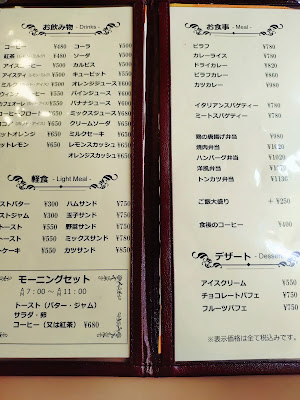 お飲み物 - Drinks -
コーヒー ¥480
紅茶 ¥480
アイスコーヒー ¥500
アイスティ ¥500
ミルク
コーラ ¥500
ソーダ ¥500
カルピス ¥500
キューピット ¥550
オレンジジュース ¥600
パインジュース ¥600
バナナジュース ¥600
ミックスジュース ¥680
クリームソーダ ¥650
ミルクセーキ ¥650
レモンスカッシュ ¥650
オレンジスカッシュ ¥650
軽食 - Light Meal -
ストバター ¥300
ストジャム ¥300
トースト ¥550
トースト ¥350
ケーキ ¥550
ハムサンド ¥750
玉子サンド ¥750
野菜サンド ¥750
ミックスサンド ¥780
カツサンド ¥850
モーニングセット
AM 7:00 ~ AM 11:00
トースト（バター・ジャム）
サラダ・卵
コーヒー（又は紅茶） ¥680
お食事 - Meal -
ピラフ ¥780
カレーライス ¥780
ドライカレー ¥820
ピラフカレー ¥860
カツカレー ¥980
イタリアンスパゲティー ¥780
ミートスパゲティー ¥780
鶏の唐揚げ弁当 ¥980
焼肉弁当 ¥1020
ハンバーグ弁当 ¥1020
洋風弁当
トンカツ弁当 ¥1130
ご飯大盛り + ¥250
食後のコーヒー ¥400
デザート - Dessert -
アイスクリーム ¥550
チョコレートパフェ ¥750
フルーツパフェ ¥750
※表示価格は全て税込みです。